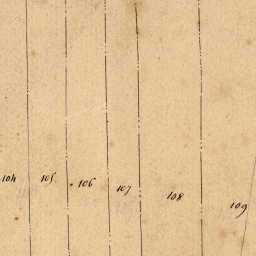 104 105 106 107 108 109